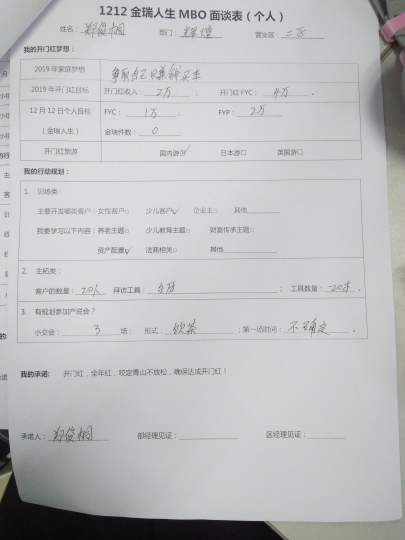 1212金瑞人生MBO面谈表（个人）
姓名：郑俊桐 部门：辉煌 营业区：二区
我的开门红梦想：
2019年家庭梦想 争取自己赚钱买车
2019年开门红目标 开门红收入：2万； 开门红FYC：4万.
12月12日个人目标（金瑞人生） FYC：1万； FYP：2万
金瑞件数：0
开门红旅游 国内游□√ 日本游□ 英国游□
我的行动规划：
1. 训练类：
主要开发哪类客户：女性客户□ 少儿客户□√ 企业主□ 其他
我要学习以下内容：养老主题□ 少儿教育主题□ 财富传承主题□
资产配置□√ 法商相关□ 其他
2. 主拓类：
客户的数量：20人 拜访工具： ；工具数量：20本.
3. 有规划参加产说会？
小交会：3场； 形式：饮茶；第一场时间：不确定.
我的承诺： 开门红，全年红，咬定青山不放松，确保达成开门红！
承诺人：郑俊桐 部经理见证： 区经理见证：